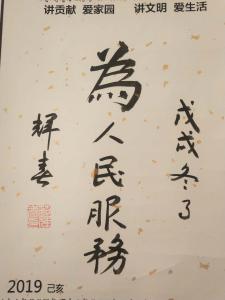 讲贡献 爱家园 讲文明 爱生活
戊戌冬了
為人民服務
輝春
2019 己亥